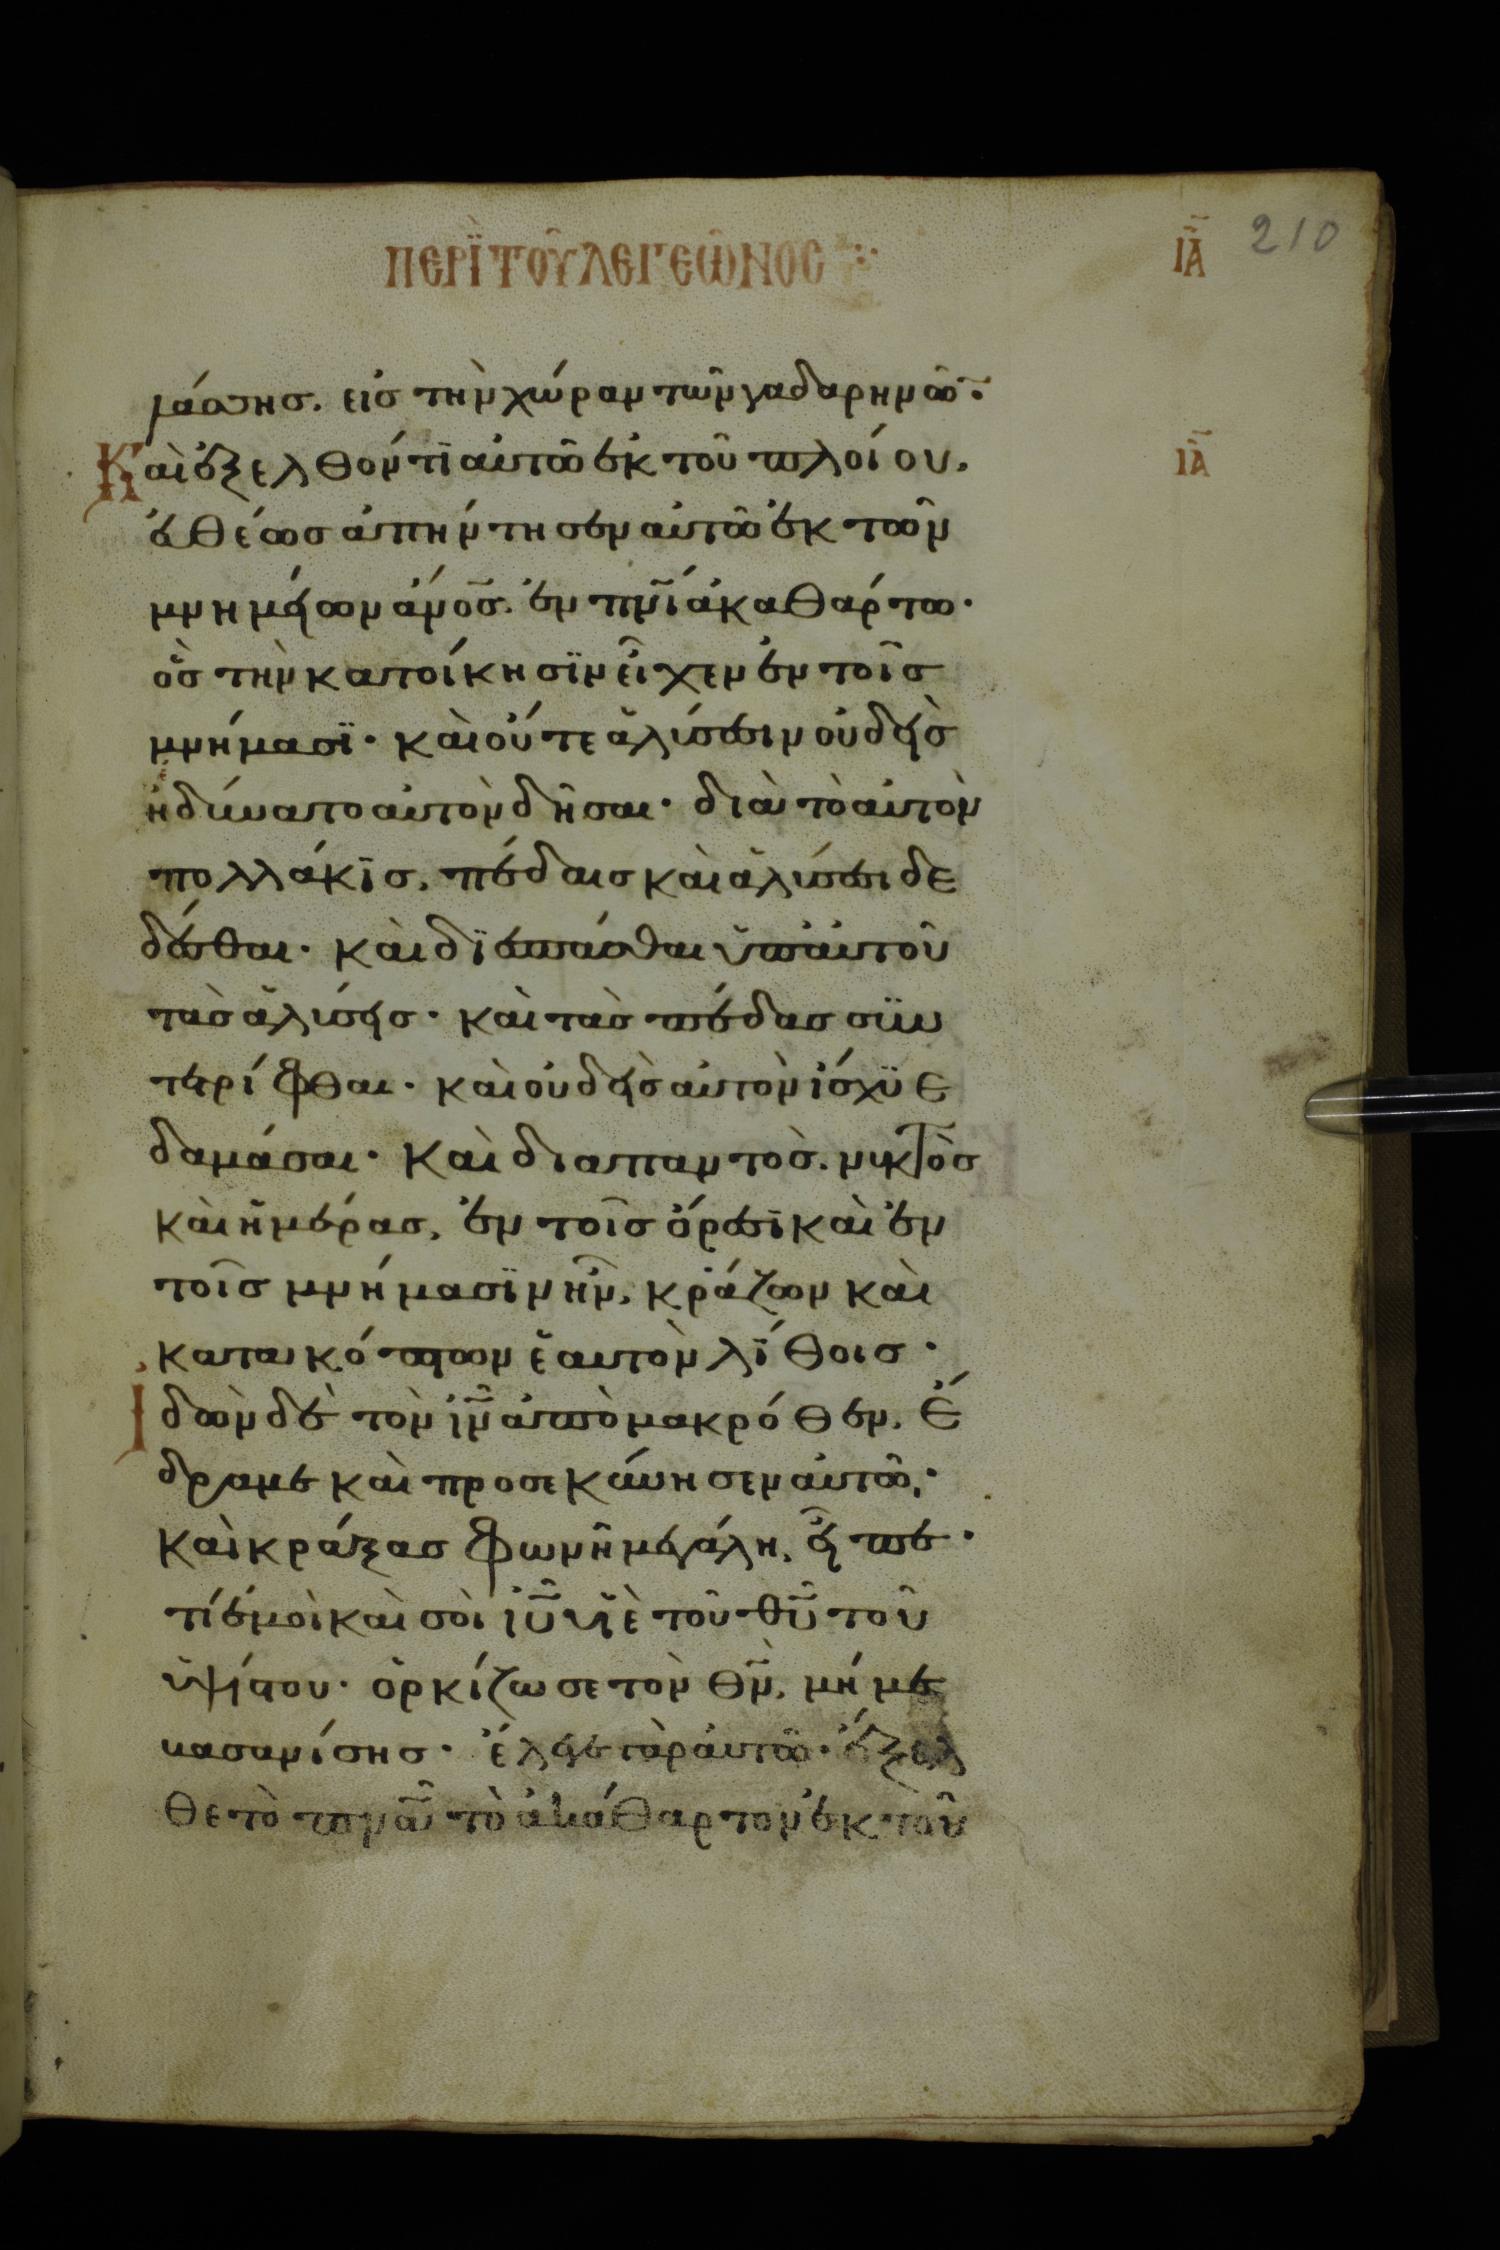 ΠΕΡΪ ΤΟῦ ΛΕΓΕῶΝΟΣ ΙΑ 210
λάσσης. εἰς τὴν χώραν τῶν γαδαρηνῶ̄·
Καὶ ἐξελθόντϊ αὐτῶ ἐκ τοῦ πλοίου, ΙΑ
ἐυθέως ἀπήντησεν αὐτῶ ἐκ τῶν
μνημείων ἀνο̅ς. ἐν πν̅ϊ ἀκαθάρτω·
ὃς τὴν κατοίκησϊν εἶχεν ἐν τοῖς
μνήμασϊ· καὶ οὔτε ἁλύσεσιν οὐδεὶς
ἠδύνατο αὐτὸν δῆσαι· διὰ τὸ αὐτὸν
πολλάκϊς, πέδαις καὶ ἁλύσεσι δε
δέσθαι· καὶ δϊεσπάσθαι ὑπ' αὐτοῦ
τὰς ἁλύσεις· καὶ τὰς πέδας συν
τετρίφθαι· καὶ οὐδεὶς αὐτὸν ἰσχϋε
δαμάσαι· καὶ διαπαντὸς. νυκτὸς
καὶ ἡμέρας, ἐν τοῖς ὄρεσϊ καὶ ἐν
τοῖς μνήμασϊν ἦν, κράζων καὶ
κατακόπτων ἑαυτὸν λΐθοις·
Ἰδὼν δὲ τὸν ι̅ν̅ ἀπὸ μακρόθεν, ἔ
δραμε καὶ προσεκύνησεν αὐτῶ,·
καὶ κράξας φωνῆ μεγάλη, εἶπε·
τί ἐμοὶ καὶ σοὶ ι̅υ̅ υἱὲ τοῦ θ̅υ̅ τοῦ
ὑψίστου· ὁρκίζω σε τὸν θ̅ν̅, μή με
βασανίσης· ἔλεγε γὰρ αὐτῶ· ἔξελ
θε τὸ πν̅α̅ τὸ ἀκάθαρτον ἐκ τοῦ